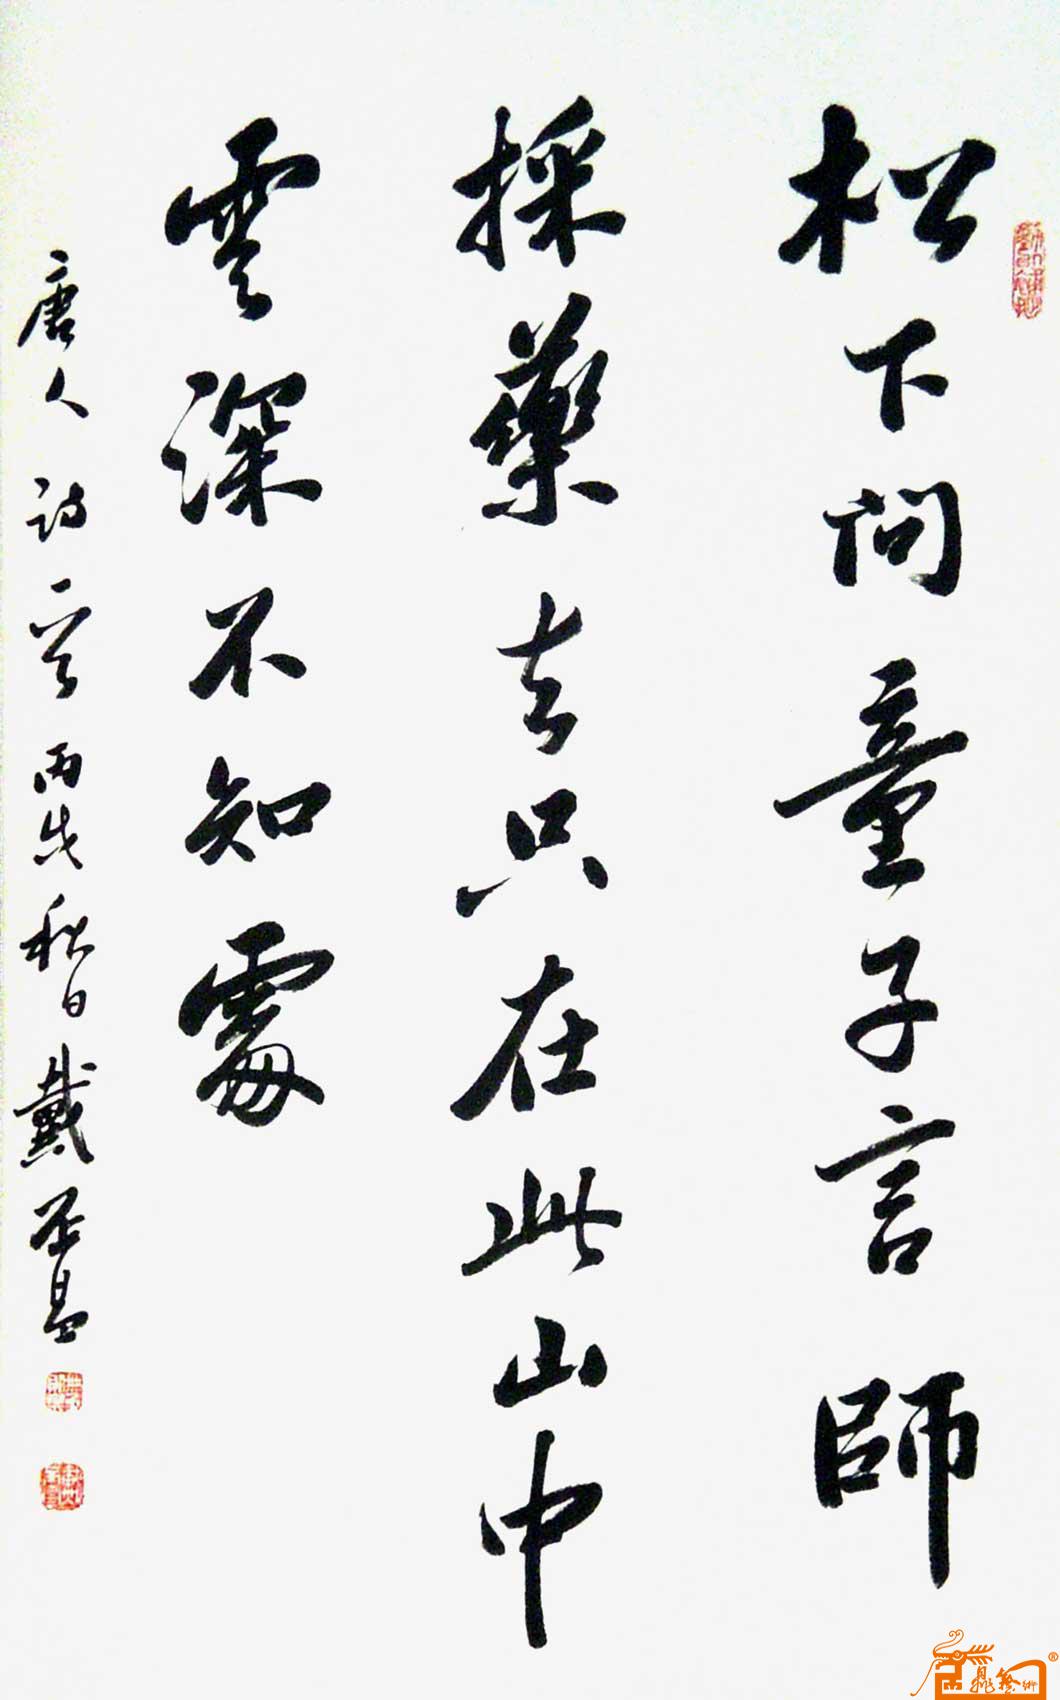 松下问童子言師
採藥去只在此山中
雲深不知處
唐人詩一首 丙戌秋日戴